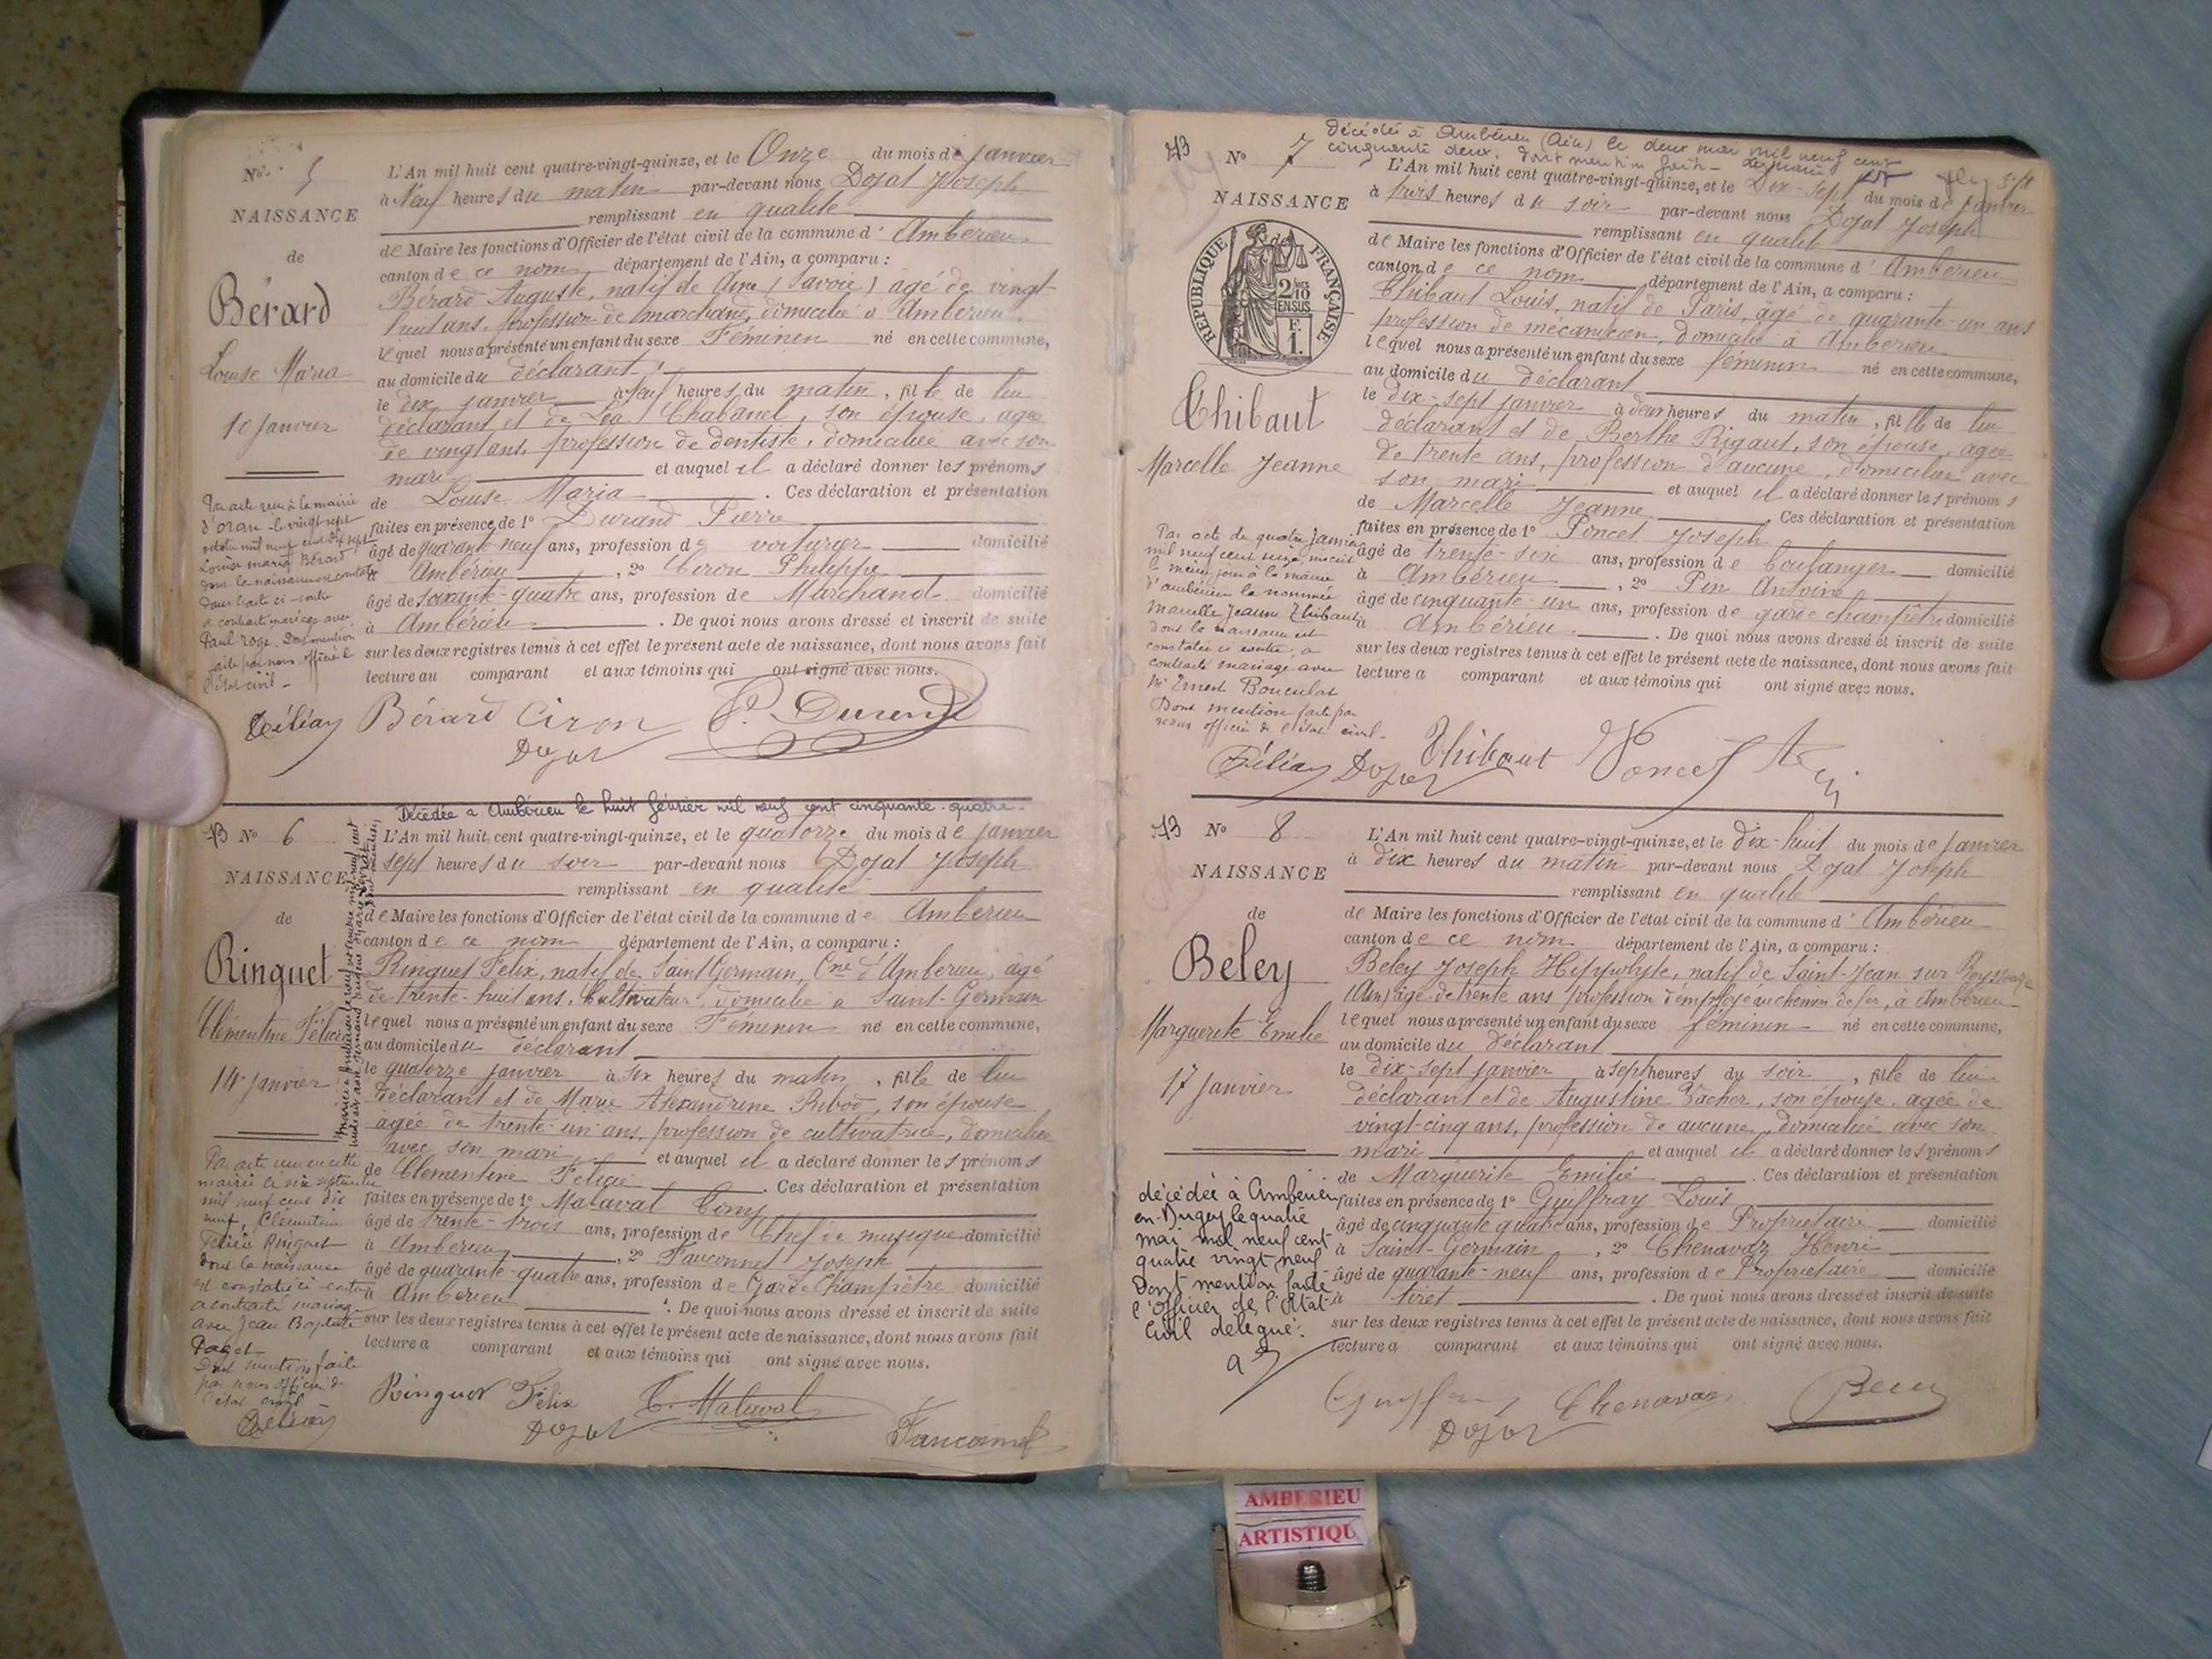 N° 5
NAISSANCE
de
Bérard
Louise Maria
10 Janvier
L'An mil huit cent quatre-vingt-quinze, et le Onze du mois de Janvier
à Neuf heures du matin par-devant nous Dojat Joseph
remplissant en qualité
de Maire les fonctions d'Officier de l'état civil de la commune d'Ambérieu
canton de ce nom département de l'Ain, a comparu :
Bérard Auguste, natif de Aime (Savoie) âgé de vingt-
huit ans, profession de marchand, domicilié à Ambérieu.
lequel nous a présenté un enfant du sexe Féminin né en cette commune,
au domicile du déclarant
le dix janvier à neuf heures du matin, fille de lui
déclarant et de Léa Chabanel, son épouse, agée
de vingt ans, profession de dentiste, domiciliée avec son
mari et auquel il a déclaré donner les prénoms
de Louise Maria. Ces déclaration et présentation
faites en présence de 1° Durand Pierre
âgé de quarante-neuf ans, profession de voiturier domicilié
à Ambérieu, 2° Ciron Philippe
âgé de soixante-quatre ans, profession de Marchand domicilié
à Ambérieu. De quoi nous avons dressé et inscrit de suite
sur les deux registres tenus à cet effet le présent acte de naissance, dont nous avons fait
lecture au comparant et aux témoins qui ont signé avec nous.
Par acte reçu à la mairie
d'Oran le vingt sept
octobre mil neuf cent dix sept
Louise Maria Bérard
dont la naissance est constatée
dans l'acte ci-contre
a contracté mariage avec
Paul Roge. Dont mention
faite par nous officier de
l'état civil -
Bérard Ciron P. Durand
Dojat
Décédée à Ambérieu le huit février mil neuf cent cinquante-quatre.
N° 6
NAISSANCE
de
Ringuet
Clémentine Félicie
14 Janvier
L'An mil huit cent quatre-vingt-quinze, et le quatorze du mois de Janvier
sept heures du soir par-devant nous Dojat Joseph
remplissant en qualité
de Maire les fonctions d'Officier de l'état civil de la commune de Ambérieu
canton de ce nom département de l'Ain, a comparu :
Ringuet Félix, natif de Saint Germain, Cne d'Ambérieu, âgé
de trente-huit ans, Cultivateur, domicilié à Saint-Germain
lequel nous a présenté un enfant du sexe Féminin né en cette commune,
au domicile du déclarant
le quatorze janvier à six heures du matin, fille de lui
déclarant et de Marie Alexandrine Pribod, son épouse
agée de trente-un ans, profession de cultivatrice, domiciliée
avec son mari et auquel il a déclaré donner les prénoms
de Clémentine Félicie. Ces déclaration et présentation
faites en présence de 1° Malaval Tony
âgé de trente-trois ans, profession de Chef de musique domicilié
à Ambérieu, 2° Fauconnet Joseph
âgé de quarante-quatre ans, profession de Garde Champêtre domicilié
à Ambérieu. De quoi nous avons dressé et inscrit de suite
sur les deux registres tenus à cet effet le présent acte de naissance, dont nous avons fait
lecture a comparant et aux témoins qui ont signé avec nous.
Par acte reçu en cette
mairie le six septembre
mil neuf cent dix
neuf, Clémentine
Félicie Ringuet
dont la naissance
est constatée ci-contre
a contracté mariage
avec Jean Baptiste
Paget
Dont mention faite
par nous officier de
l'état civil
Ringuet Félix T. Malaval
Dojat Fauconnet
Décédée à Ambérieu (Ain) le deux mai mil neuf cent
cinquante deux. Dont mention faite
N° 7
NAISSANCE
de
RÉPUBLIQUE FRANÇAISE
2/10 EN SUS
F. 1.
Thibaut
Marcelle Jeanne
L'An mil huit cent quatre-vingt-quinze, et le Dix-sept du mois de Janvier
à trois heures du soir par-devant nous Dojat Joseph
remplissant en qualité
de Maire les fonctions d'Officier de l'état civil de la commune d'Ambérieu
canton de ce nom, département de l'Ain, a comparu :
Thibaut Louis, natif de Paris, âgé de quarante-un ans
profession de mécanicien, domicilié à Ambérieu
lequel nous a présenté un enfant du sexe féminin né en cette commune,
au domicile du déclarant
le dix-sept janvier à deux heures du matin, fille de lui
déclarant et de Berthe Rigaut, son épouse, agée
de trente ans, profession d'aucune, domiciliée avec
son mari et auquel il a déclaré donner les prénoms
de Marcelle Jeanne. Ces déclaration et présentation
faites en présence de 1° Poncet Joseph
âgé de trente-six ans, profession de boulanger domicilié
à Ambérieu, 2° Pin Antoine
âgé de cinquante-un ans, profession de garde champêtre domicilié
à Ambérieu. De quoi nous avons dressé et inscrit de suite
sur les deux registres tenus à cet effet le présent acte de naissance, dont nous avons fait
lecture a comparant et aux témoins qui ont signé avec nous.
Par acte du quatre janvier
mil neuf cent seize, inscrit
le même jour à la mairie
d'Ambérieu la nommée
Marcelle Jeanne Thibaut
dont la naissance est
constatée ci contre, a
contracté mariage avec
Mr Ernest Bouculat
Dont mention faite par
nous officier de l'état civil.
Dojat Thibaut Poncet
N° 8
NAISSANCE
de
Beley
Marguerite Emilie
17 Janvier
L'An mil huit cent quatre-vingt-quinze, et le dix-huit du mois de Janvier
à dix heures du matin par-devant nous Dojat Joseph
remplissant en qualité
de Maire les fonctions d'Officier de l'état civil de la commune d'Ambérieu
canton de ce nom département de l'Ain, a comparu :
Beley Joseph Hippolyte, natif de Saint-Jean sur Reyssouze
(Ain) âgé de trente ans profession d'employé au chemin de fer, à Ambérieu
lequel nous a présenté un enfant du sexe féminin né en cette commune,
au domicile du déclarant
le dix-sept janvier à sept heures du soir, fille de lui
déclarant et de Augustine Vacher, son épouse, agée de
vingt-cinq ans, profession de aucune, domiciliée avec son
mari et auquel il a déclaré donner les prénoms
de Marguerite Emilie. Ces déclaration et présentation
faites en présence de 1° Guiffray Louis
âgé de cinquante quatre ans, profession de Propriétaire domicilié
à Saint-Germain, 2° Chenavaz Henri
âgé de quarante-neuf ans, profession de Propriétaire domicilié
à Tiret. De quoi nous avons dressé et inscrit de suite
sur les deux registres tenus à cet effet le présent acte de naissance, dont nous avons fait
lecture a comparant et aux témoins qui ont signé avec nous.
décédée à Ambérieu
en-Bugey le quatre
mai mil neuf cent
quatre vingt neuf
Dont mention faite
l'Officier de l'Etat
Civil délégué.
Chenavaz
Dojat
AMBERIEU
ARTISTIQU